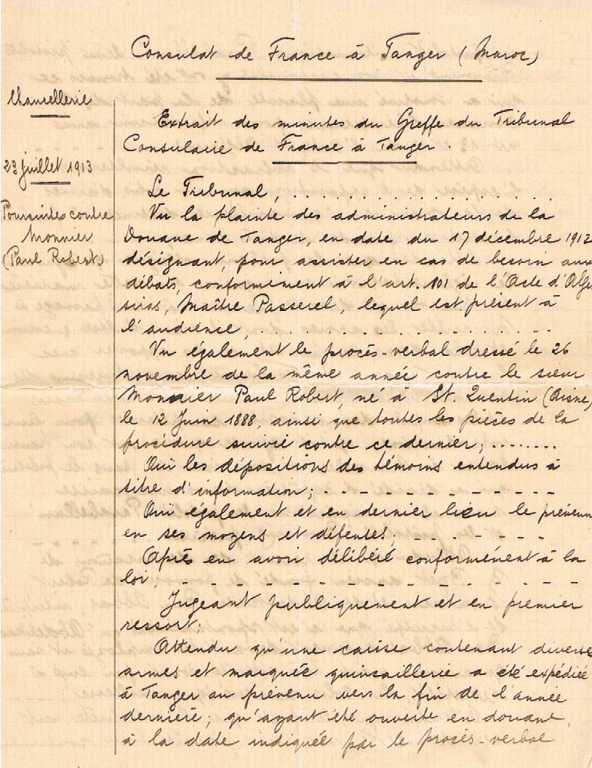 Consulat de France à Tanger (Maroc)
Chancellerie
23 juillet 1913
Poursuites contre
Monnier
(Paul Robert)
Extrait des minutes du Greffe du Tribunal
Consulaire de France à Tanger.
Le Tribunal, . . . . . . . . . . . . . .
Vu la plainte des administrateurs de la
Douane de Tanger, en date du 17 décembre 1912
désignant, pour assister en cas de besoin aux
débats, conformément à l'art. 101 de l'Acte d'Algé
siras, Maître Passerel, lequel est présent à
l'audience, . . . . . . . . . . . .
Vu également le procès-verbal dressé le 26
novembre de la même année contre le sieur
Monnier Paul Robert, né à St. Quentin (Aisne)
le 12 Juin 1888, ainsi que toutes les pièces de la
procédure suivie contre ce dernier; . . . . . . . .
Oui les dépositions des témoins entendus à
titre d'information; . - - - - - - - - -
Oui également et en dernier lieu le prévenu
en ses moyens et défenses. . . . . . -
Après en avoir délibéré conformément à la
loi, - - - - - - - - - - - -
Jugeant publiquement et en premier
ressort;
Attendu qu'une caisse contenant diverses
armes et marquée quincaillerie a été expédiée
à Tanger au prévenu vers la fin de l'année
dernière; qu'ayant été ouverte en douane,
à la date indiquée par le procès-verbal